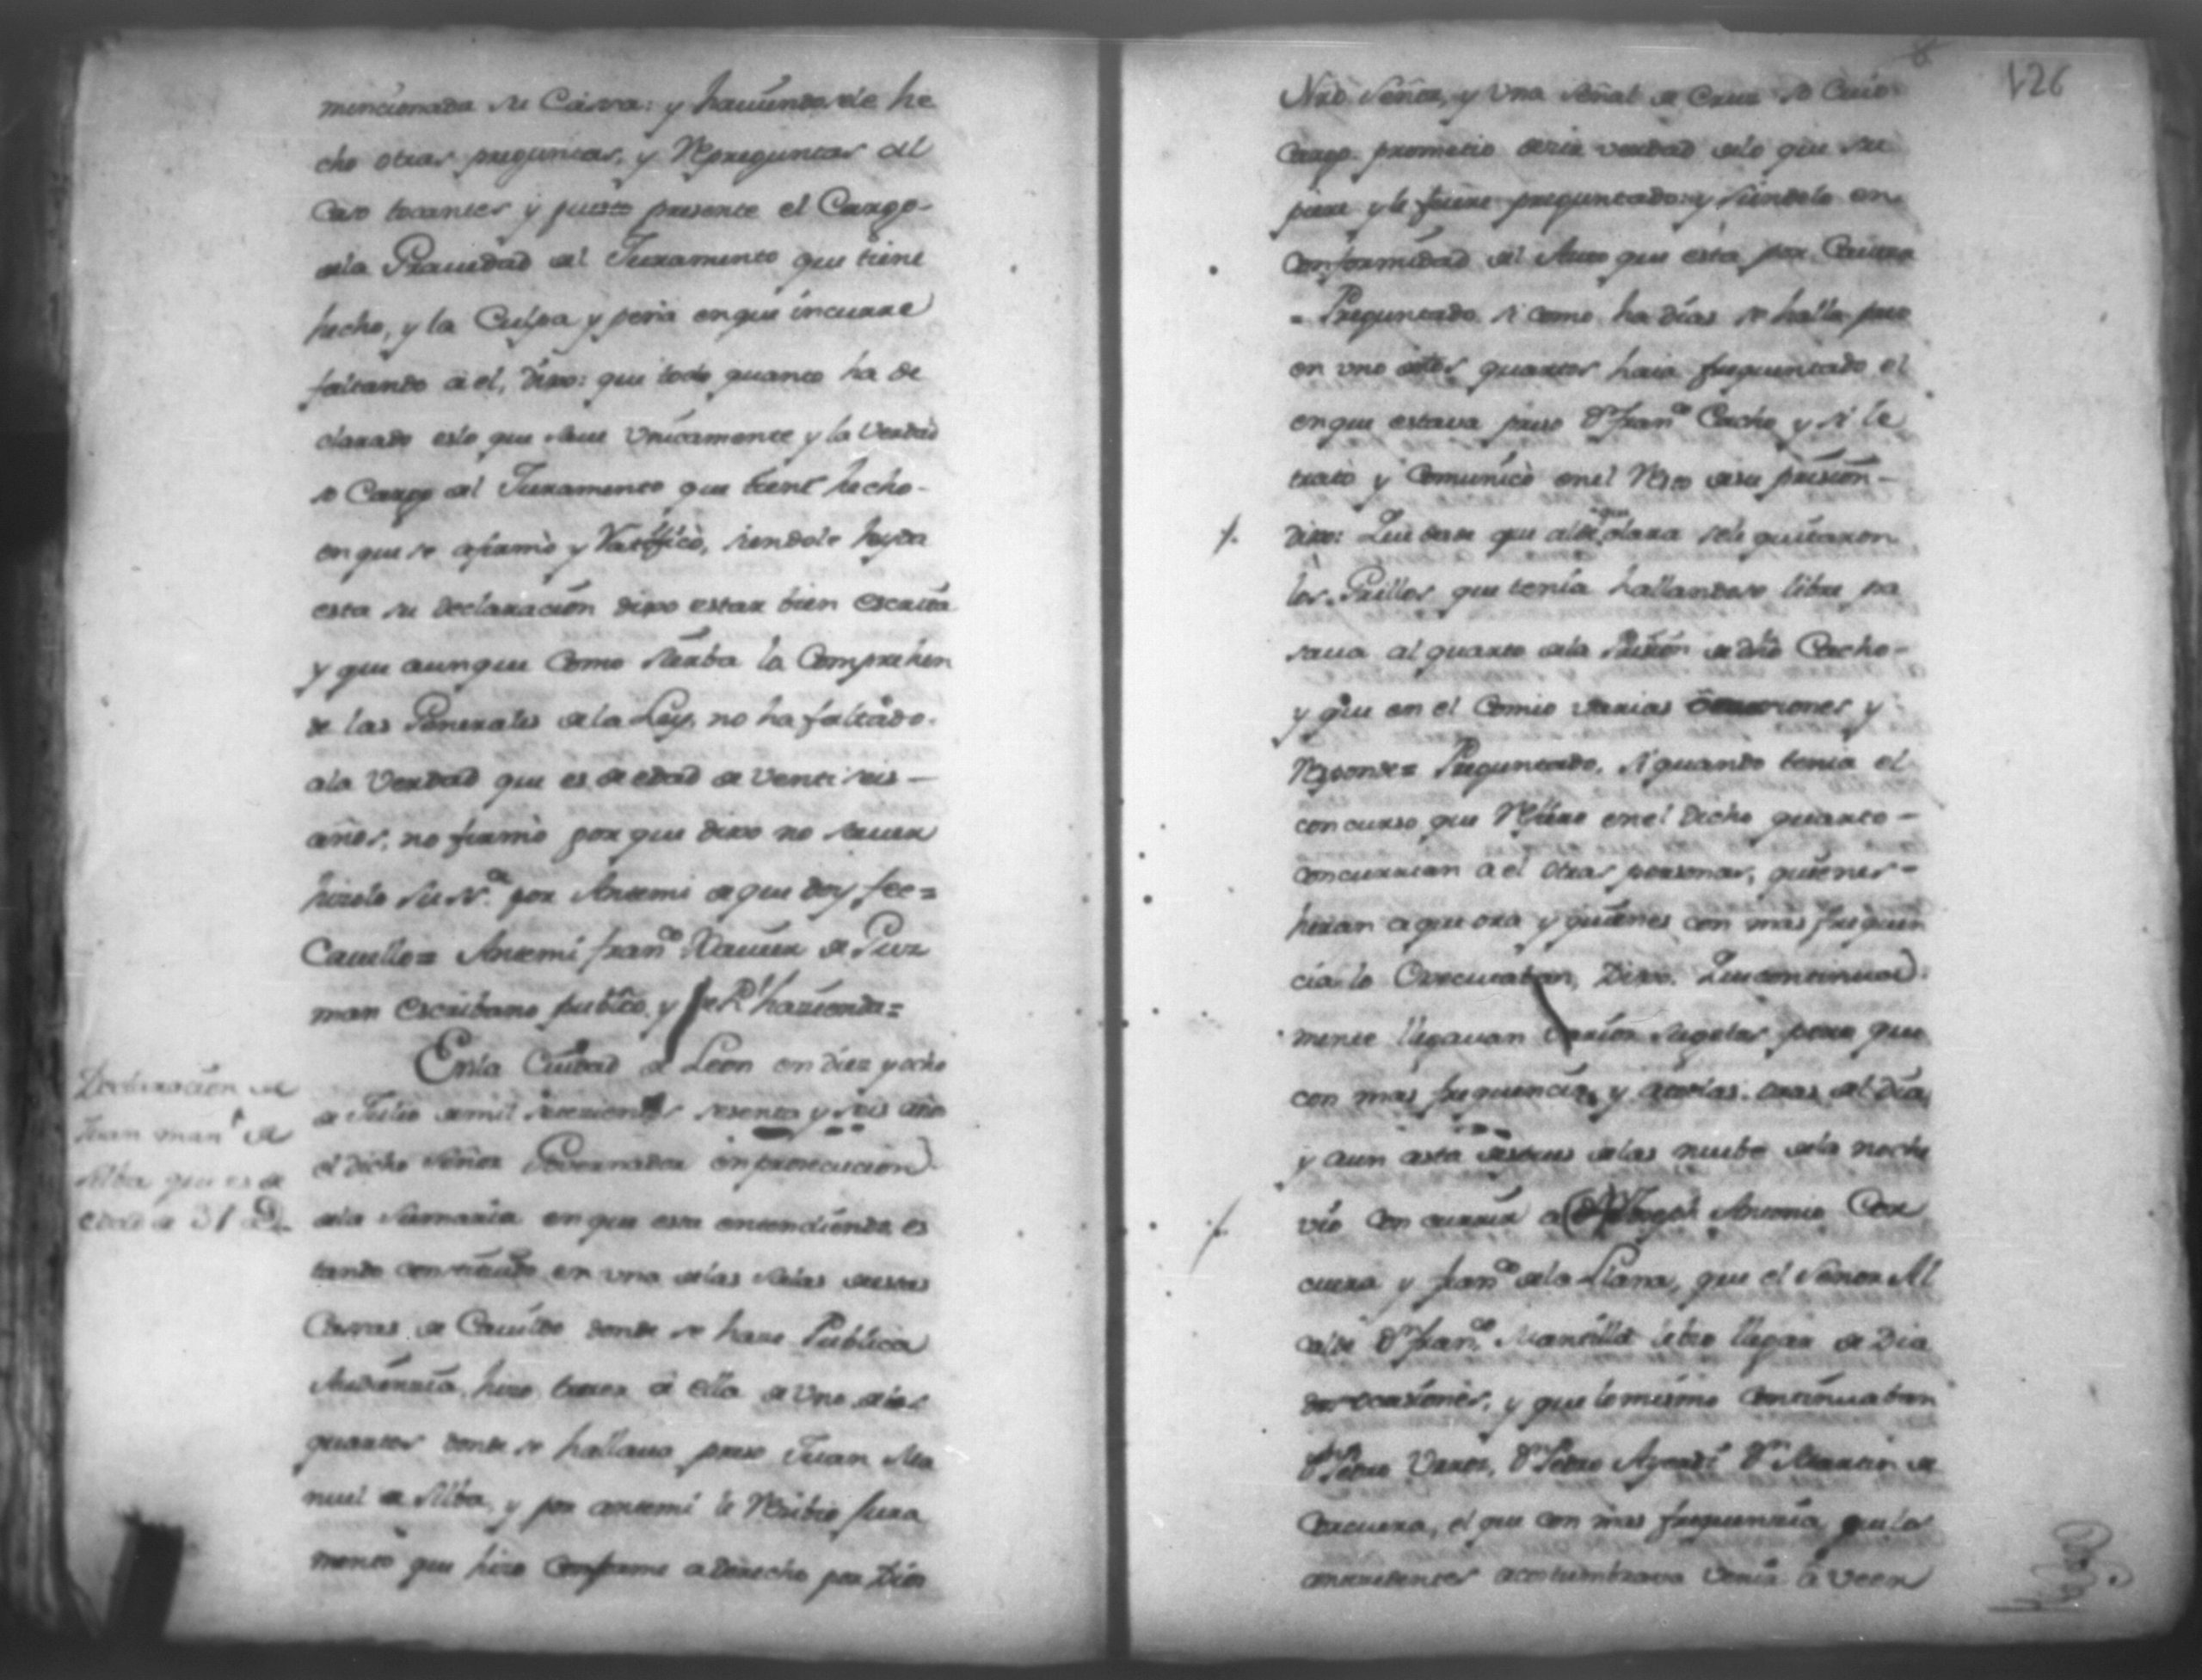 mencionada su Cassa: y haciendosele he
cho otras preguntas, y Repreguntas al
Caso tocantes y puesto presente el Cargo-
dela Gravedad del Juramento que tiene
hecho, y la Culpa y pena enque incurre
faltando a el, dixo: que todo quanto ha de
clarado eslo que save Unicamente y la Verdad
so Cargo del Juramento que tiene hecho-
en que se afirmò y Ratificò, siendole leyda
esta su declaracion dixo estar bien escrita
y que aunque Como suerba la Comprehen
de las Generales dela Ley, no ha faltado.
ala Verdad que es de edad de Venti seis-
años, no firmò por que dixo no saver
hizolo su m.d por Antemi de que doy fee=
Cavello= Antemi Fran.co Xavier de Guz
man escribano publico, y de R.l hacienda=
Enla Ciudad de Leon en diez y ocho
de Julio demil setecientos sesenta y seis años
el dicho señor Governador en prosecucion
dela sumaria en que esta entendiendo es
tando constituido en una delas salas destas
Cassas de Cavildo donde se hace Publica
Audiencia, hizo traer à ella de Uno delos
quartos donde se hallava preso Juan Ma
nuel de Alba, y por antemi le Recibio Jura
mento que hizo Conforme a derecho por Dios
Declaracion de
Juan man.l de
Alba que es de
edad de 31 a.s
126
Nrô Señor, y Una señal de Cruz so Cuio
Cargo prometio decir verdad delo que su
piere y le fuere preguntado: y siendolo en
Conformidad del Auto que esta por Cavera
= Preguntado si como ha dias se halla preso
en uno destos quartos havia frequentado el
en que estava preso D.n Fran.co Cacho y si le
tratò y Comunicò enel Resto desu prision-
dixo: Que desde que al que declara sele quitaron
los Grillos que tenia hallandose libre pa
sava al quarto dela Prision de dho Cacho-
y que en el Comio varias ocasiones y
Responde= Preguntado, si quando tenia el
concurso que Refiere enel dicho quarto-
concurrian a el otras personas, quienes-
heran a que ora y quienes con mas frequen
cia lo Executaban, Dixo. Que continua
mente llegavan Varios sugetos pero que
con mas frequencia, y atodas oras del Dia
y aun asta despues delas nuebe dela noche
vio Con currir a D.n Antonio Cor
cuera y Fran.co dela Llana, que el señor Al
calde D.n Fran.co Mansilla lebio llegar de Dia
dos ocasiones, y que lomismo Continuaban
D.n Pedro D.n Pedro D.n Martin de
Corcuera, el que con mas frequencia quelos
antecedentes acostumbrava Venir à veer